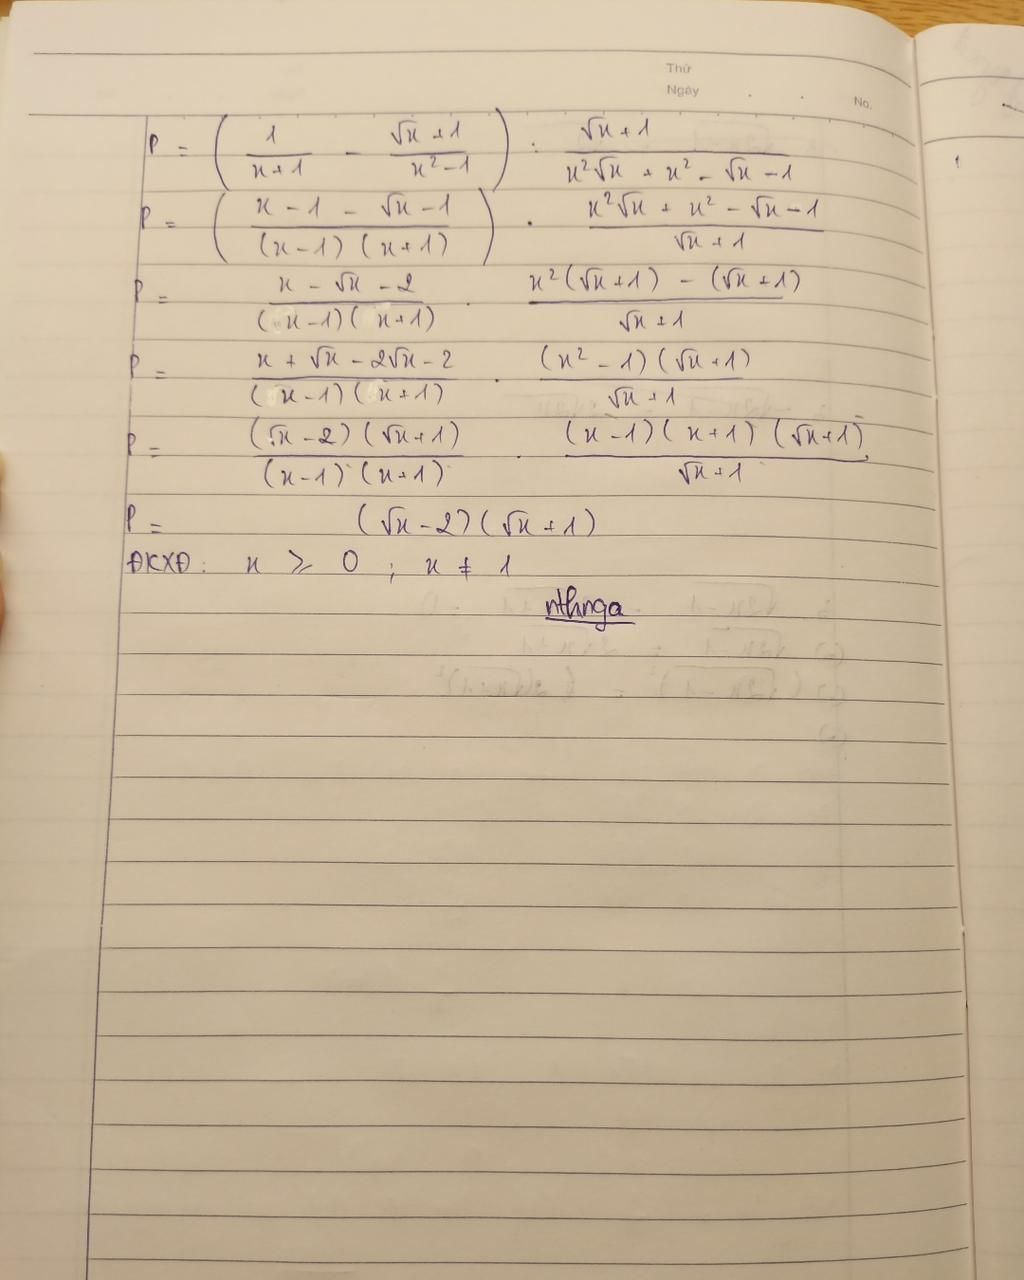 Thứ
Ngày . . No.
P = ( 1/(x+1) - (√x+1)/(x²-1) ) : (√x+1)/(x²√x + x² - √x - 1)
P = ( (x-1-√x-1)/((x-1)(x+1)) ) . (x²√x + x² - √x - 1)/(√x+1)
P = (x-√x-2)/((x-1)(x+1)) . (x²(√x+1) - (√x+1))/(√x+1)
P = (x+√x-2√x-2)/((x-1)(x+1)) . ((x²-1)(√x+1))/(√x+1)
P = ((√x-2)(√x+1))/((x-1)(x+1)) . ((x-1)(x+1)(√x+1))/(√x+1)
P = (√x-2)(√x+1)
ĐKXĐ: x ≥ 0 ; x ≠ 1
nthnga